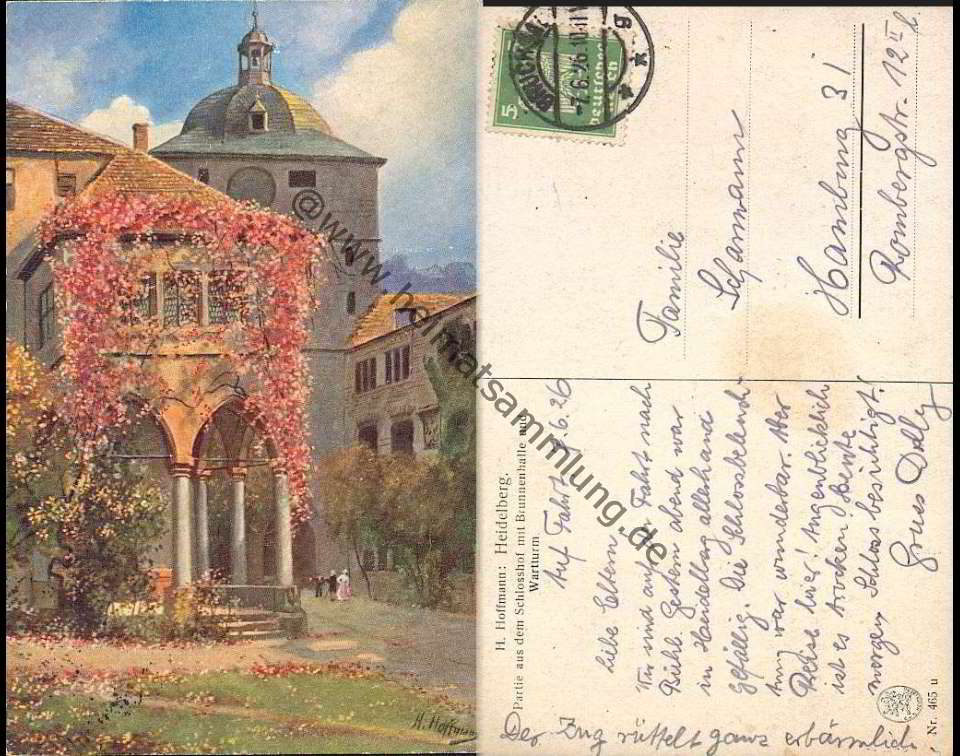 H. Hoffmann
@www.heimatsammlung.de
5
Deutsches
Reich
BRUCK
7.6.26.10-11V
g
Familie
Schamann
Hamburg 31
Rombergstr. 12 II
H. Hoffmann: Heidelberg.
Partie aus dem Schlosshof mit Brunnenhalle und
Wartturm.
Auf Fahrt .6.26
Liebe Eltern!
Wir sind auf der Fahrt nach
Brühl. Gestern abend war
in Heidelberg allerhand
gefällig. Die Schlossbeleuch-
tung war wunderbar. Aber
Regen hier! Augenblicklich
ist es trocken, heute
morgen Schloss besichtigt!
Gruss Dolly
Der Zug rüttelt ganz erbärmlich.
Nr. 465 u